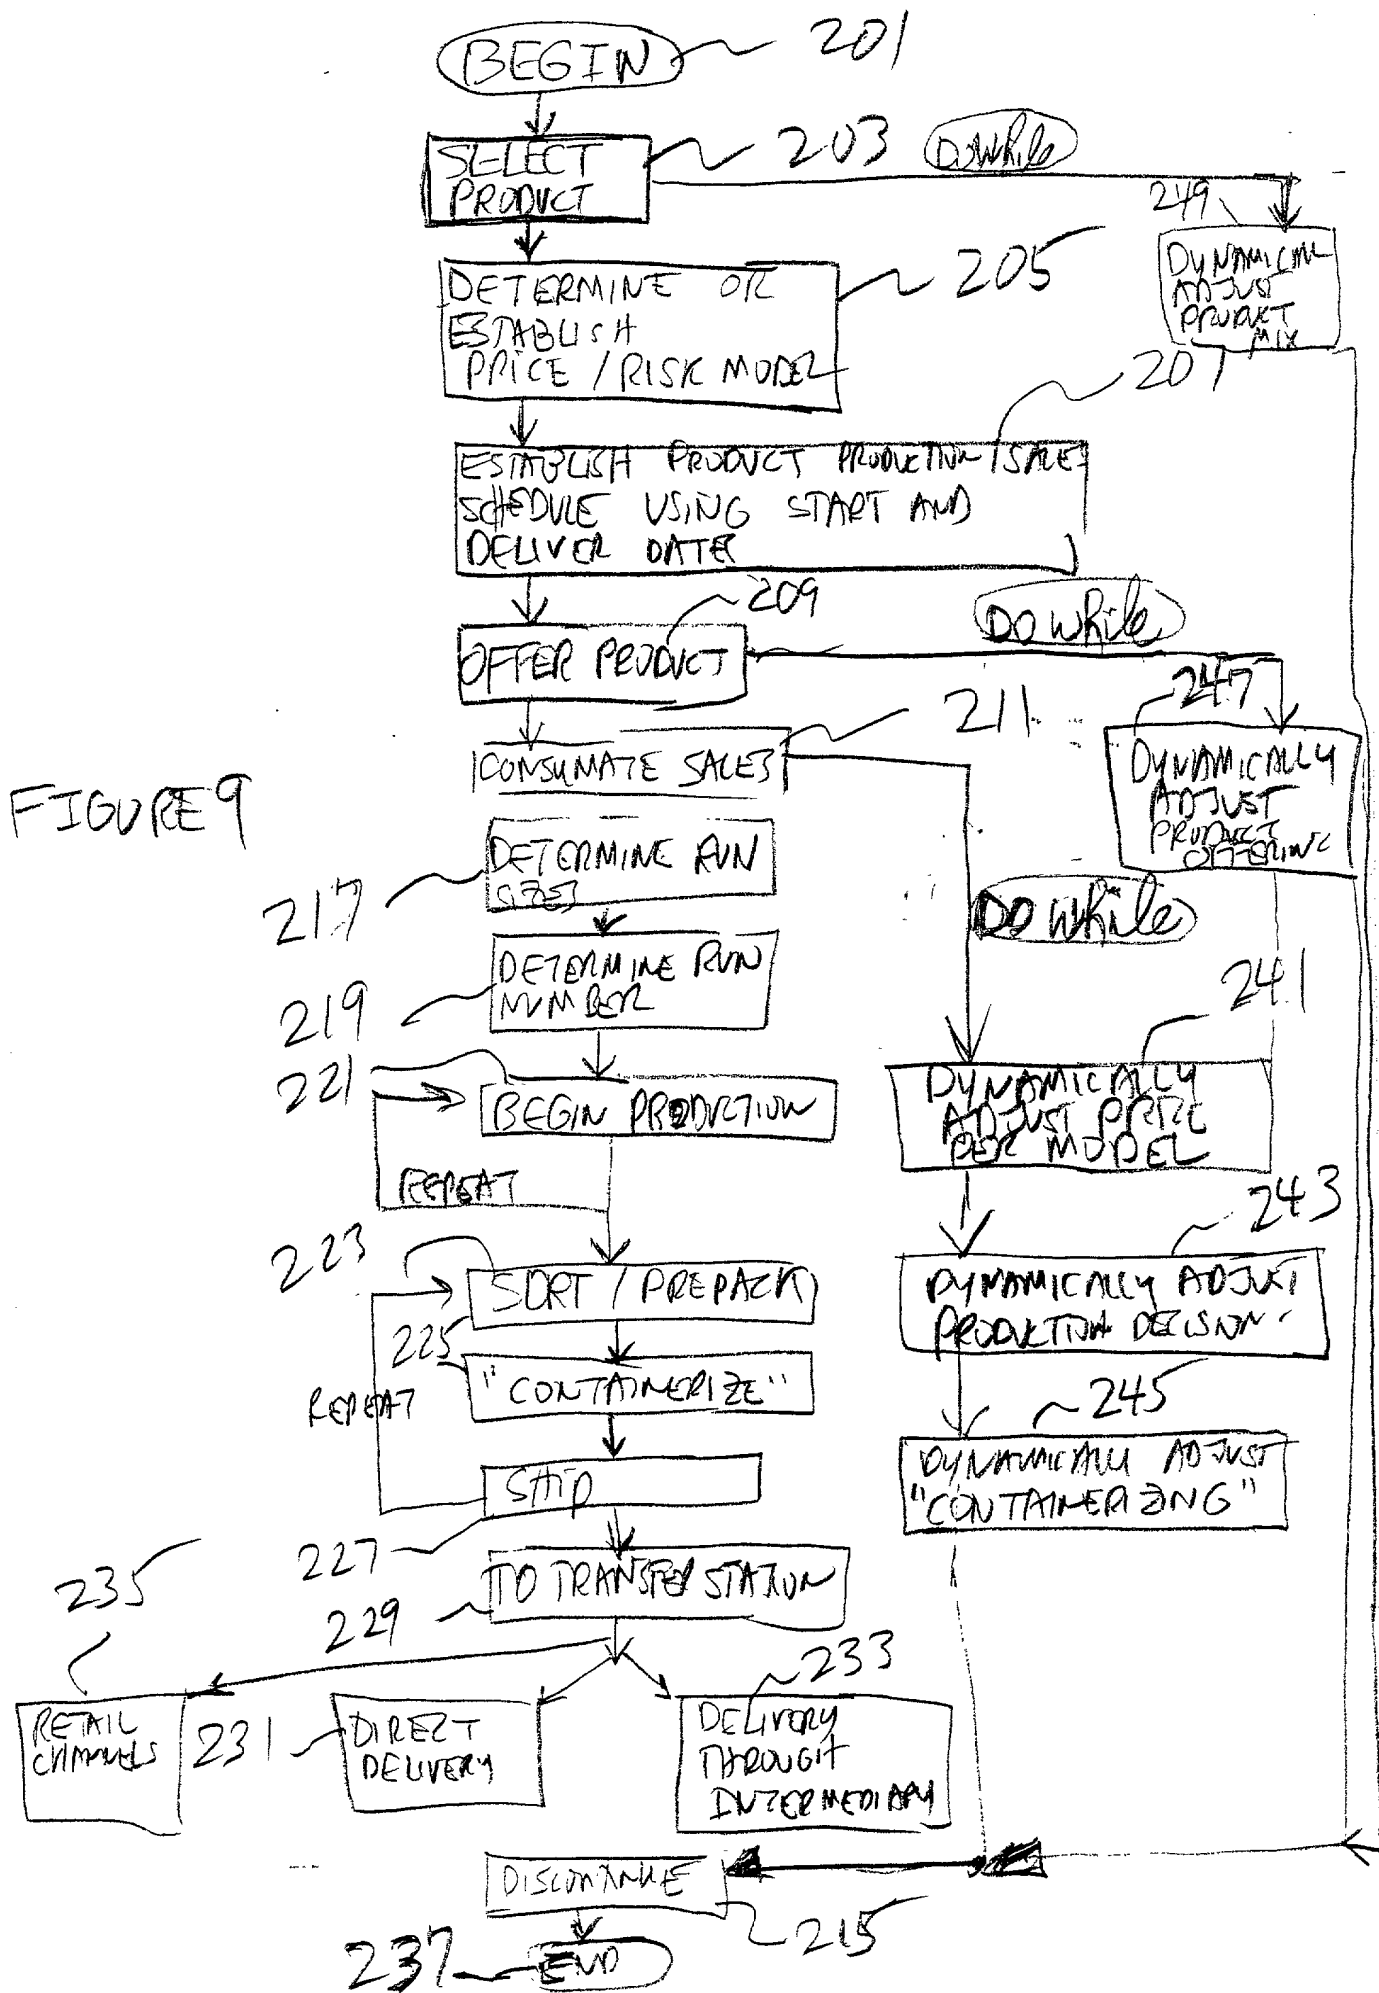 BEGIN
201
SELECT
PRODUCT
203
Do while
249
DYNAMICALL
ADJUST
PRODUCT
MIX
DETERMINE OR
ESTABLISH
PRICE / RISK MODEL
205
207
ESTABLISH PRODUCT PRODUCTION / SALES
SCHEDULE USING START AND
DELIVER DATES
209
OFFER PRODUCT
Do while
247
DYNAMICALLY
ADJUST
PRODUCT
OFFERING
211
CONSUMATE SALES
FIGURE 9
DETERMINE RUN
SIZES
217
Do while
DETERMINE RUN
NUMBER
219
221
BEGIN PRODUCTION
REPEAT
241
DYNAMICALLY
ADJUST PRICE
PER MODEL
223
SORT / PREPACK
243
DYNAMICALLY ADJUST
PRODUCTION DECISION
225
"CONTAINERIZE"
REPEAT
245
DYNAMICALLY ADJUST
"CONTAINERIZING"
SHIP
227
TO TRANSFER STATION
229
235
RETAIL
CHANNELS
231
DIRECT
DELIVERY
233
DELIVERY
THROUGH
INTERMEDIARY
DISCONTINUE
215
237
END